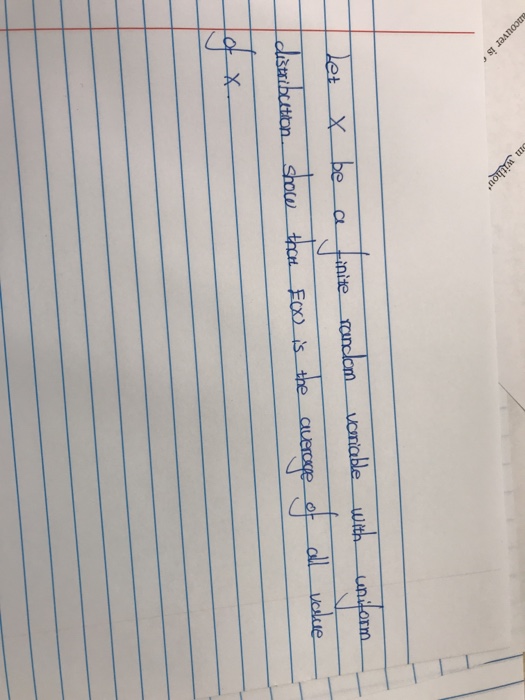 Let X be a finite random variable with uniform
distribution. Show that E(X) is the average of all value
of X.